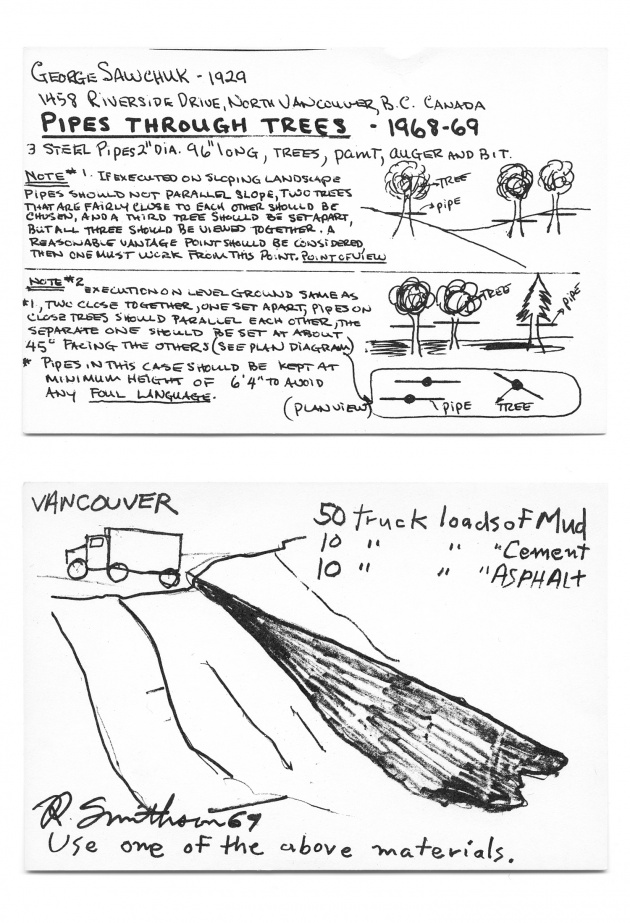 GEORGE SAWCHUK - 1929
1458 RIVERSIDE DRIVE, NORTH VANCOUVER, B.C. CANADA
PIPES THROUGH TREES - 1968-69
3 STEEL PIPES 2" DIA. 96" LONG, TREES, PAINT, AUGER AND BIT.
NOTE #1. IF EXECUTED ON SLOPING LANDSCAPE
PIPES SHOULD NOT PARALLEL SLOPE, TWO TREES
THAT ARE FAIRLY CLOSE TO EACH OTHER SHOULD BE
CHOSEN, AND A THIRD TREE SHOULD BE SET APART,
BUT ALL THREE SHOULD BE VIEWED TOGETHER. A
REASONABLE VANTAGE POINT SHOULD BE CONSIDERED
THEN ONE MUST WORK FROM THIS POINT. POINT OF VIEW
TREE
PIPE
NOTE #2
EXECUTION ON LEVEL GROUND SAME AS
#1, TWO CLOSE TOGETHER, ONE SET APART, PIPES ON
CLOSE TREES SHOULD PARALLEL EACH OTHER, THE
SEPARATE ONE SHOULD BE SET AT ABOUT
45° FACING THE OTHERS (SEE PLAN DIAGRAM)
* PIPES IN THIS CASE SHOULD BE KEPT AT
MINIMUM HEIGHT OF 6'4" TO AVOID
ANY FOUL LANGUAGE.
TREE
PIPE
(PLAN VIEW)
PIPE
TREE
VANCOUVER
50 truck loads of Mud
10 " " " Cement
10 " " " ASPHALt
R. Smithson 69
Use one of the above materials.